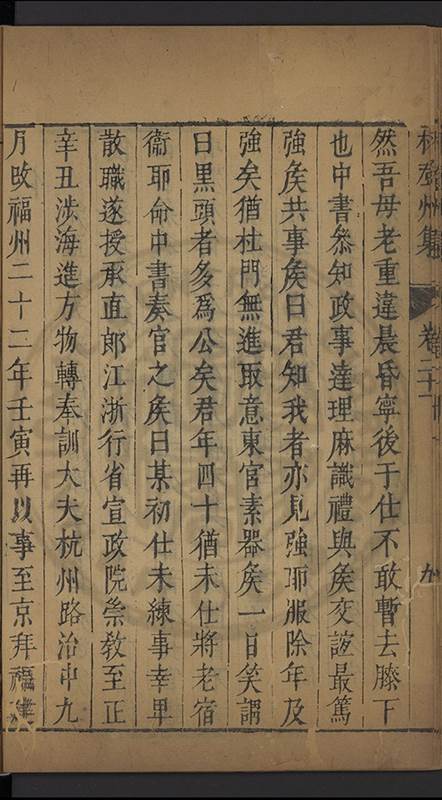 林登州集 卷二十一 九
然吾母老重違晨昏寧後于仕不敢暫去膝下
也中書叅知政事達理麻識禮與矦交誼最篤
強矦共事矦曰君知我者亦見強耶服除年及
強矣猶杜門無進取意東官素器矦一日笑謂
曰黒頭者多爲公矣君年四十猶未仕將老宿
衞耶命中書奏官之矦曰某初仕未練事幸畀
散職遂授承直郎江浙行省宣政院崇教至正
辛丑涉海進方物轉奉訓大夫杭州路治中九
月改福州二十二年壬寅再以事至京拜福建